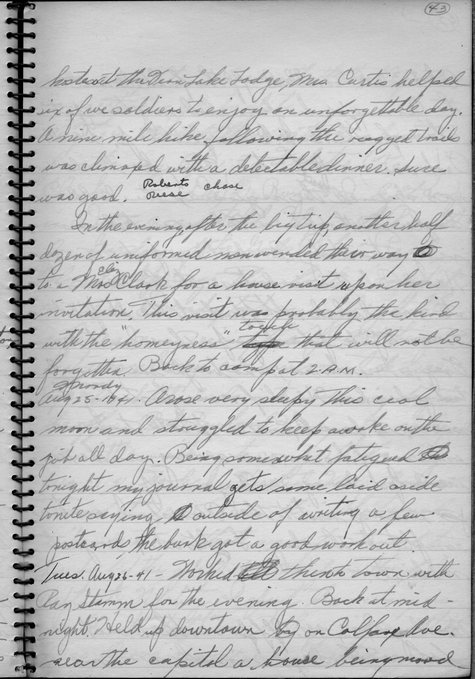 43
hostess at the Lake Lodge, Mrs. Curtis helped
six of we soldiers to enjoy an unforgettable day.
A nine mile hike following the rugged trails
was climaxed with a delectable dinner. Sure
was good. Roberts Reese chase
In the evening after the big trip another half
dozen of uniformed men wended their way
to a Mrs. Clark for a house visit upon her
invitation. This visit was probably the kind
with the "homeyness" that will not be
forgotten. Back to camp at 2 A.M.
Monday
Aug 25-1941. Arose very sleepy this
moon and struggled to keep awake on the
job all day. Being somewhat fatigued
tonight my journal gets some laid aside
tonite saying outside of writing a few
postcards the bunk got a good work out.
Tues. Aug 26-41 - Worked then to town with
Ray Stamm for the evening. Back at mid-
night. Held up downtown by on Colfax Ave.
near the capitol a house being moved